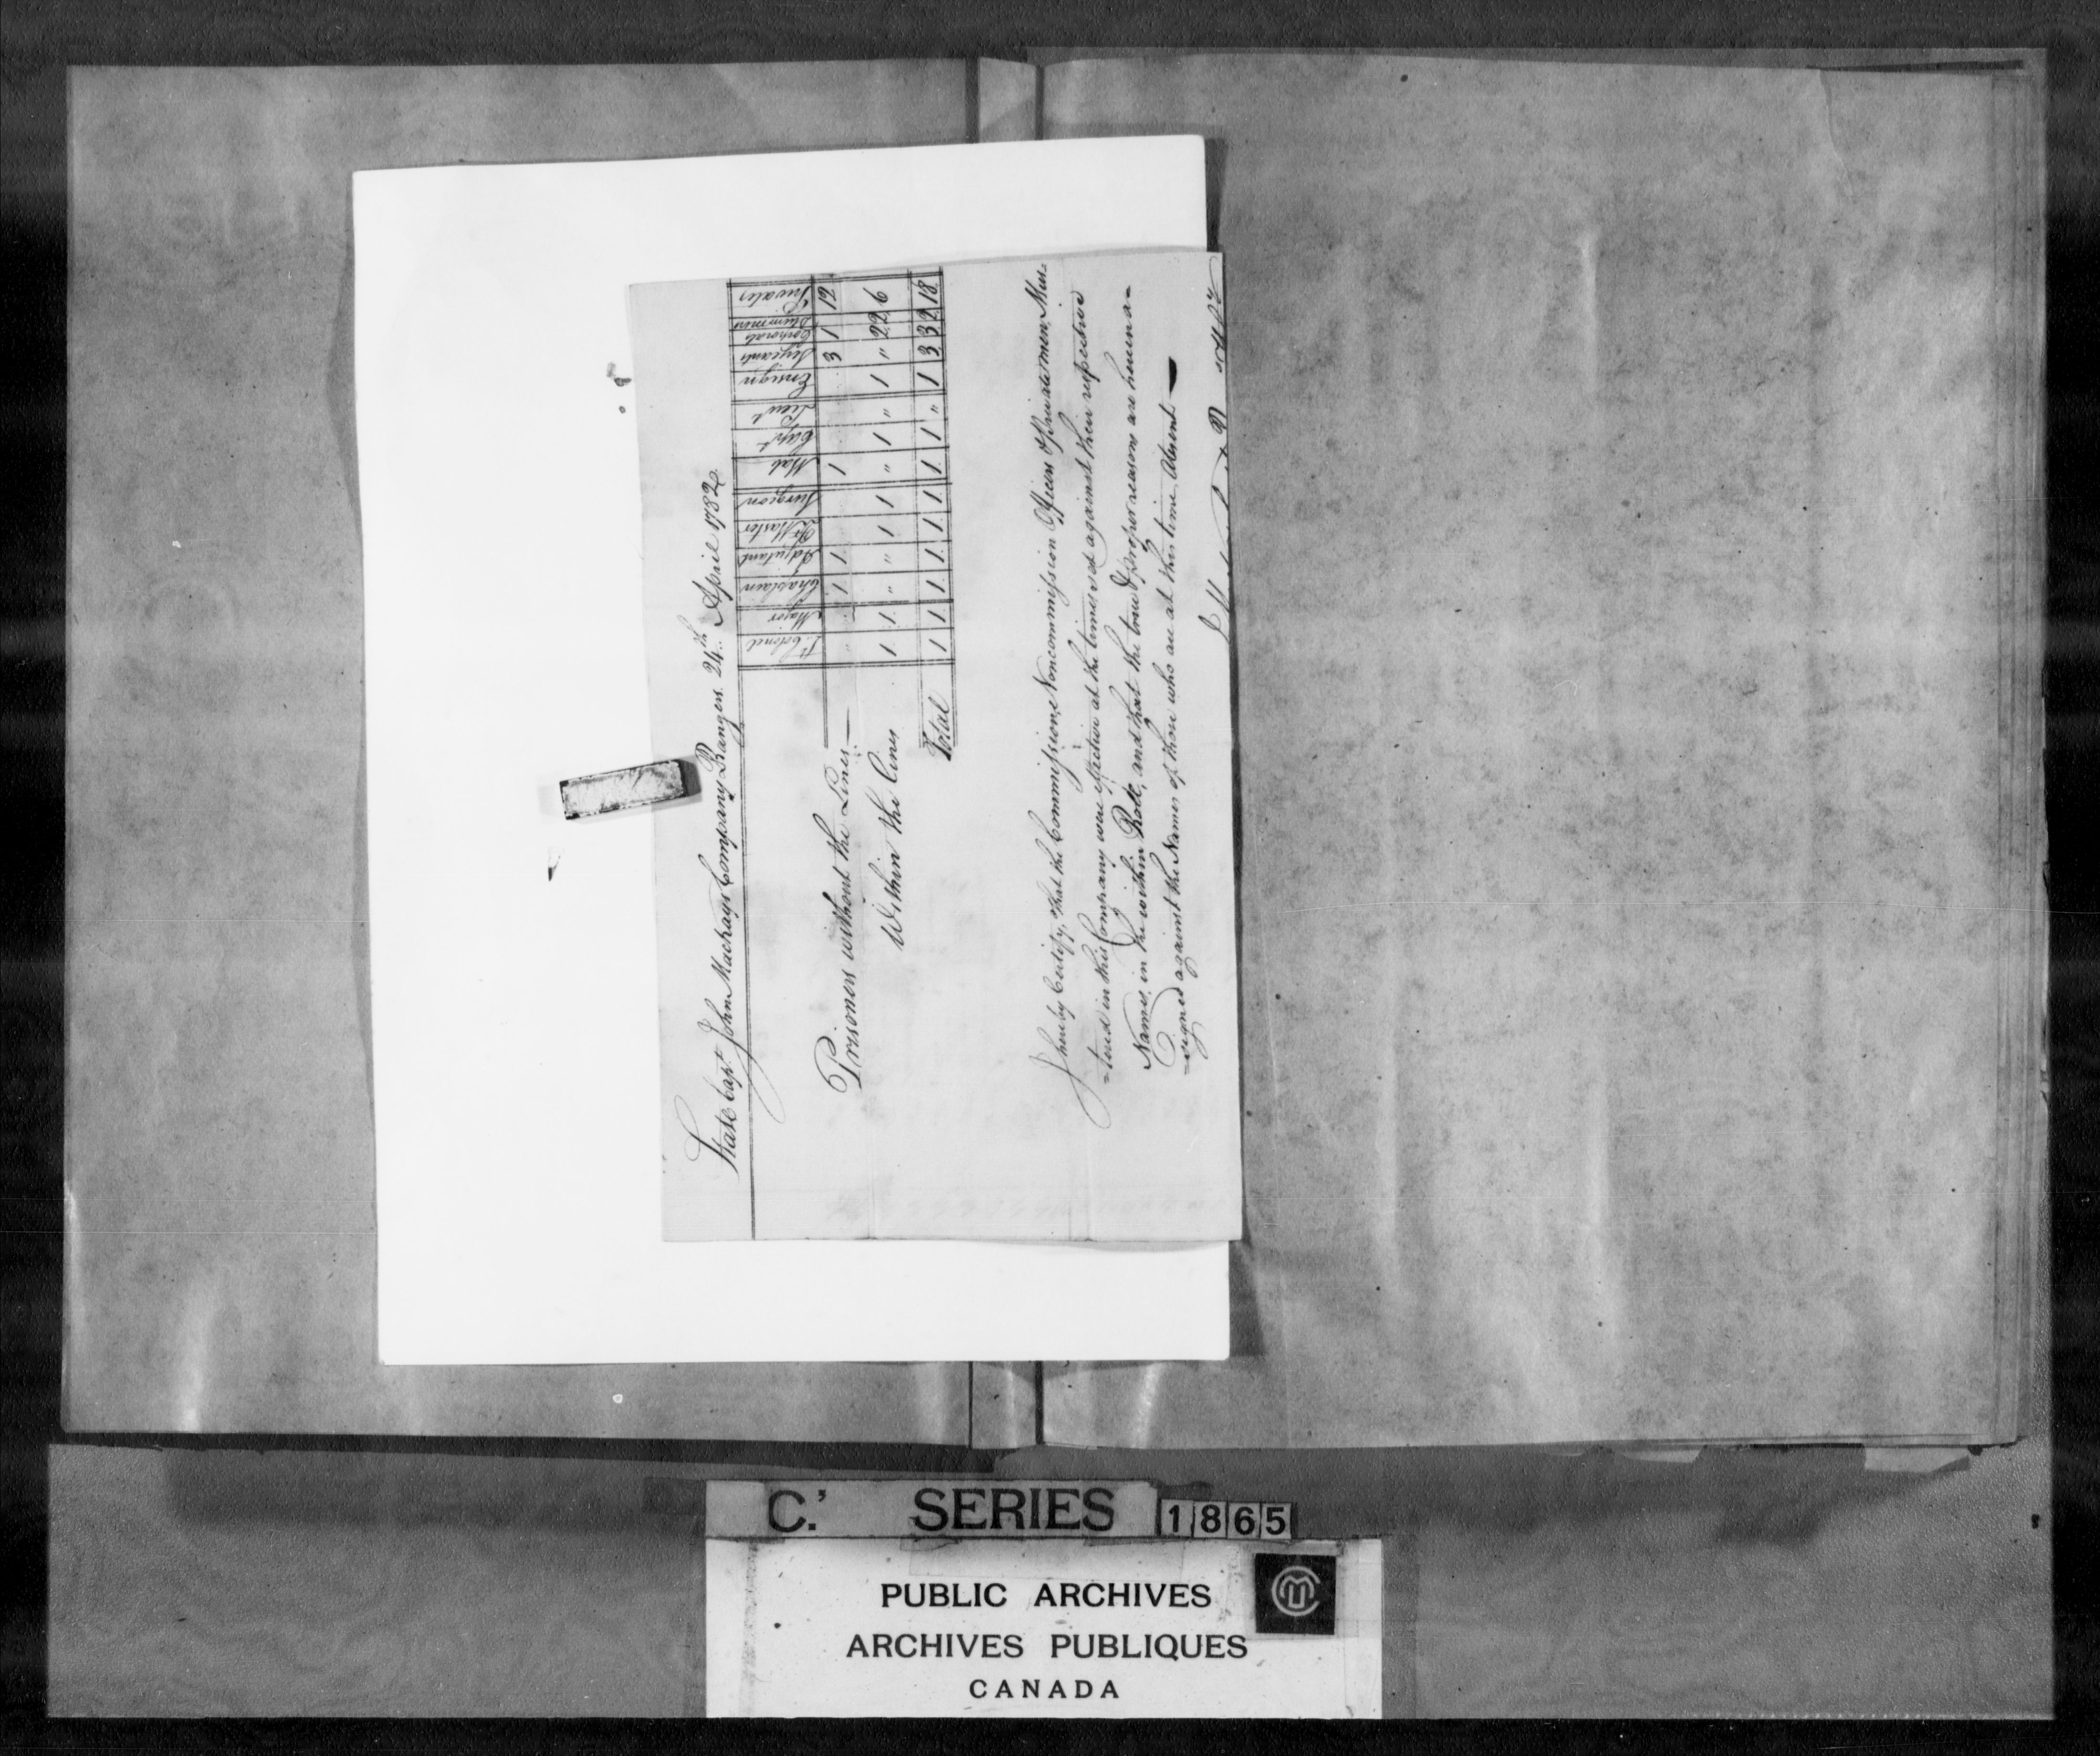 State Capt. John Mackays Company Rangers. 24th April 1782
Lt. Colonel Major Chaplain Adjutant Qr. Master Surgeon Mate Capt. Lieut Ensign Serjeants Corporals Drummers Privates
Prisoners without the Lines — " " 1 1 1 3 1 12
Within the lines 1 1 " " 1 1 " 1 " 1 " 2 2 6
Total 1 1 1 1 1 1 1 1 " 1 3 3 2 18
I hereby Certify, that the Commission, Noncommission Officers & private men, Mus=
=tered in this Company were effective at the times set against their respective
Names, in the within Roll, and that the true & proper reasons are herein a=
=signed against the Names of those who are at this time Absent —
C.' SERIES 1865
PUBLIC ARCHIVES
ARCHIVES PUBLIQUES
CANADA